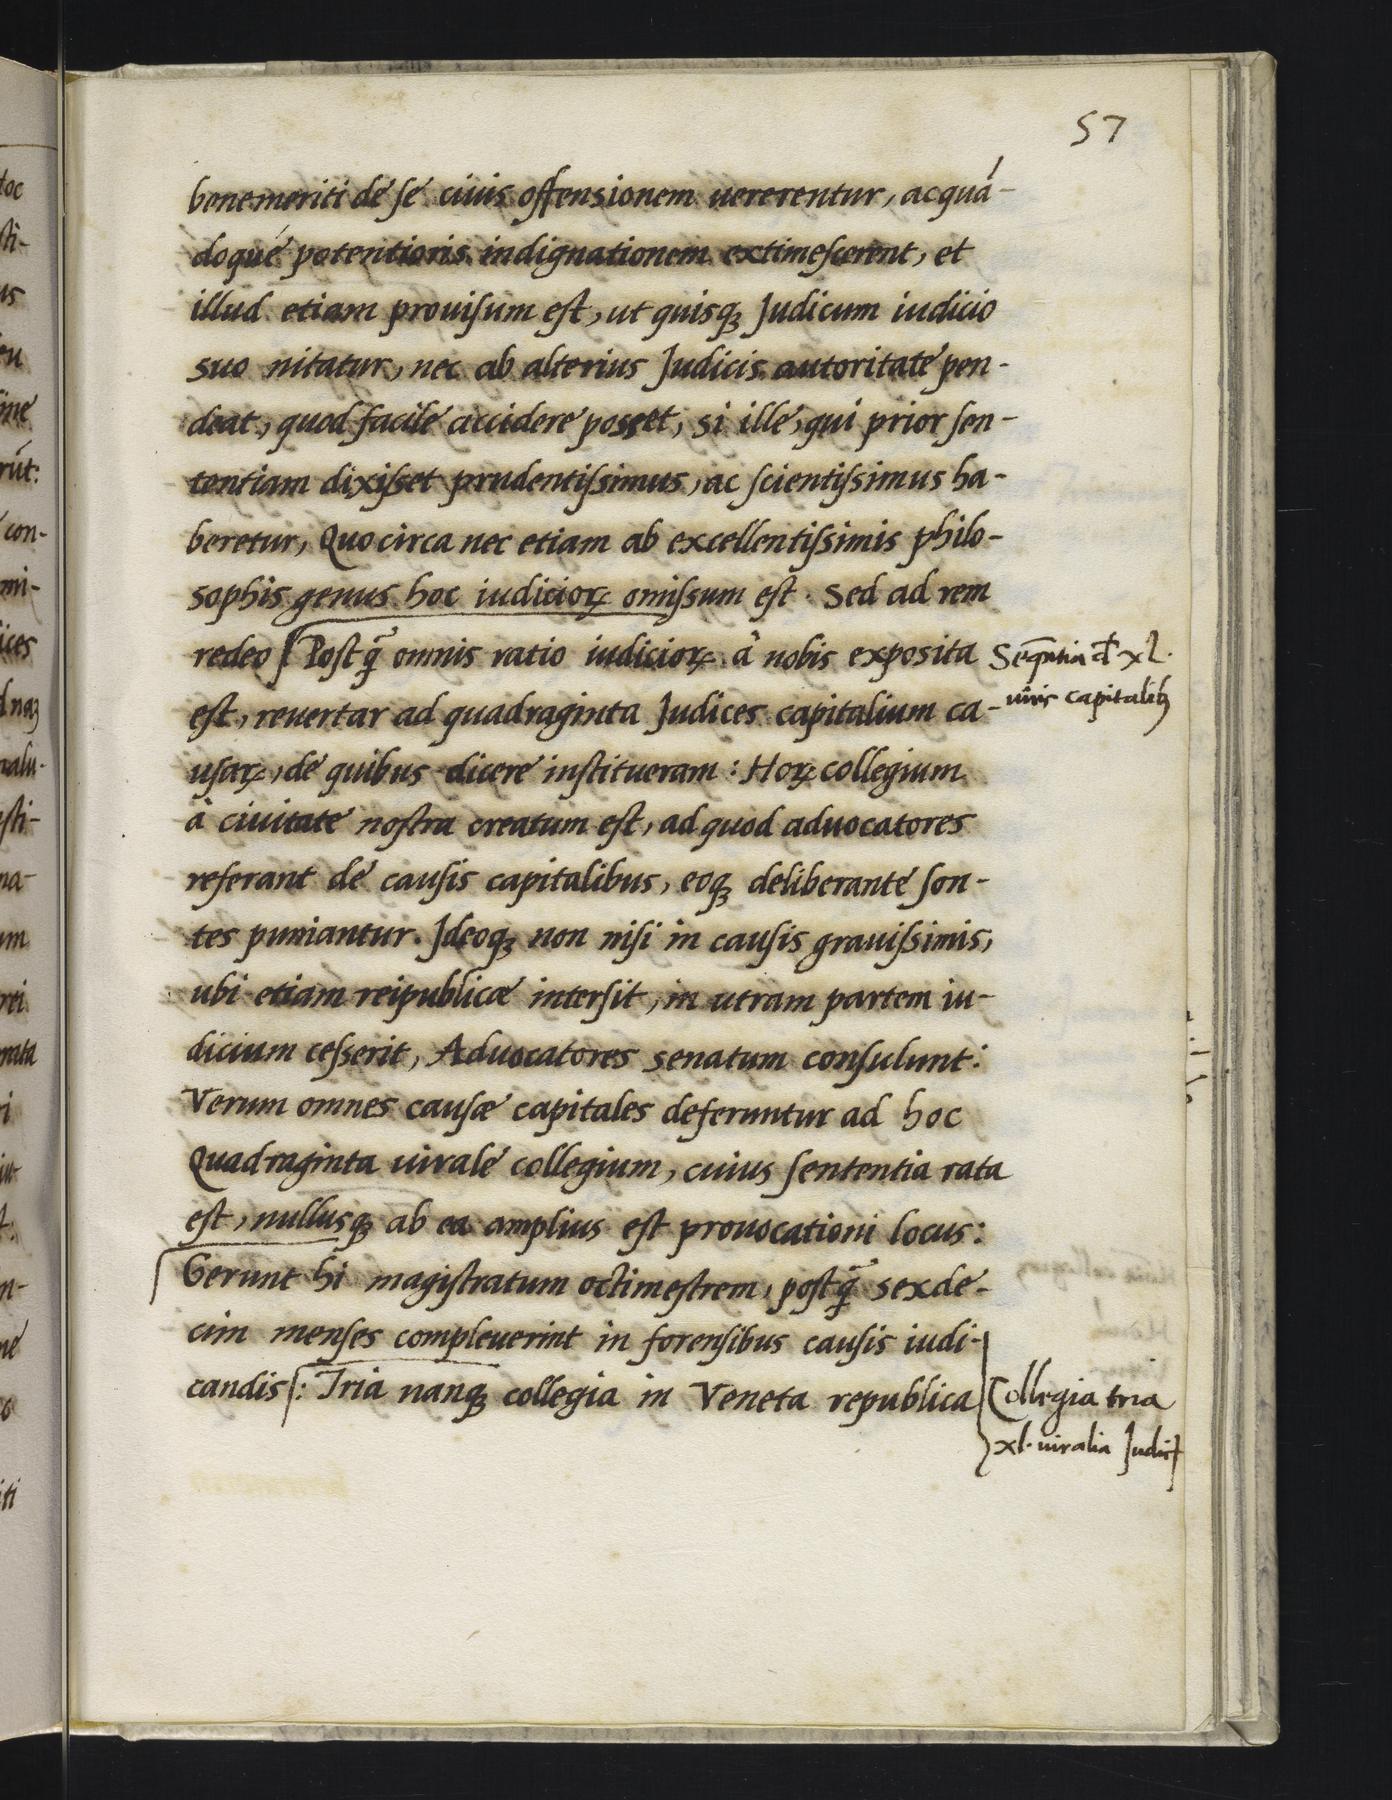 57
benemeriti de se ciuis offensionem uererentur, ac quá-
doque potentioris indignationem extimescerent, et
illud etiam prouisum est, ut quisqꝫ Judicum iudicio
suo nitatur, nec ab alterius Judicis autoritate pen-
deat, quod facile accidere posset, si ille, qui prior sen-
tentiam dixisset prudentissimus, ac scientissimus ha-
beretur, Quocirca nec etiam ab excellentissimis philo-
sophis genus hoc iudicioꝝ omissum est. Sed ad rem
redeo [Postq̃ omnis ratio iudicioꝝ à nobis exposita
est, reuertar ad quadraginta Judices capitalium ca-
usaꝝ, de quibus dicere institueram: Hoꝝ collegium
à ciuitate nostra creatum est, ad quod aduocatores
referant de causis capitalibus, eoqꝫ deliberante son-
tes puniantur. Ideoqꝫ non nisi in causis grauissimis,
ubi etiam reipublicæ intersit, in utram partem iu-
dicium cesserit, Aduocatores senatum consulunt:
Verum omnes causæ capitales deferuntur ad hoc
Quadraginta uirale collegium, cuius sententia rata
est, nullusqꝫ ab ea amplius est prouocationi locus:
Gerunt hi magistratum octimestrem, postq̃ sexde-
cim menses compleuerint in forensibus causis iudi-
candis [: Tria nanqꝫ collegia in Veneta republica
xl.
uiris capitalibꝫ
Collegia tria
xl. uiralia